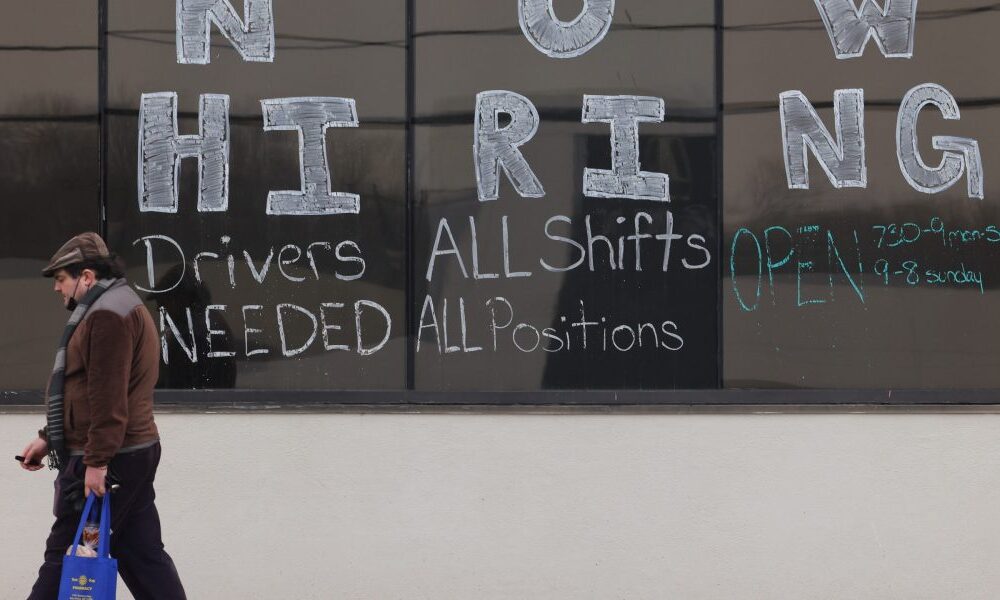 NOW
HIRING
Drivers
NEEDED
ALL Shifts
ALL Positions
OPEN
730-9 mon-s
9-8 sunday
PHARMACY